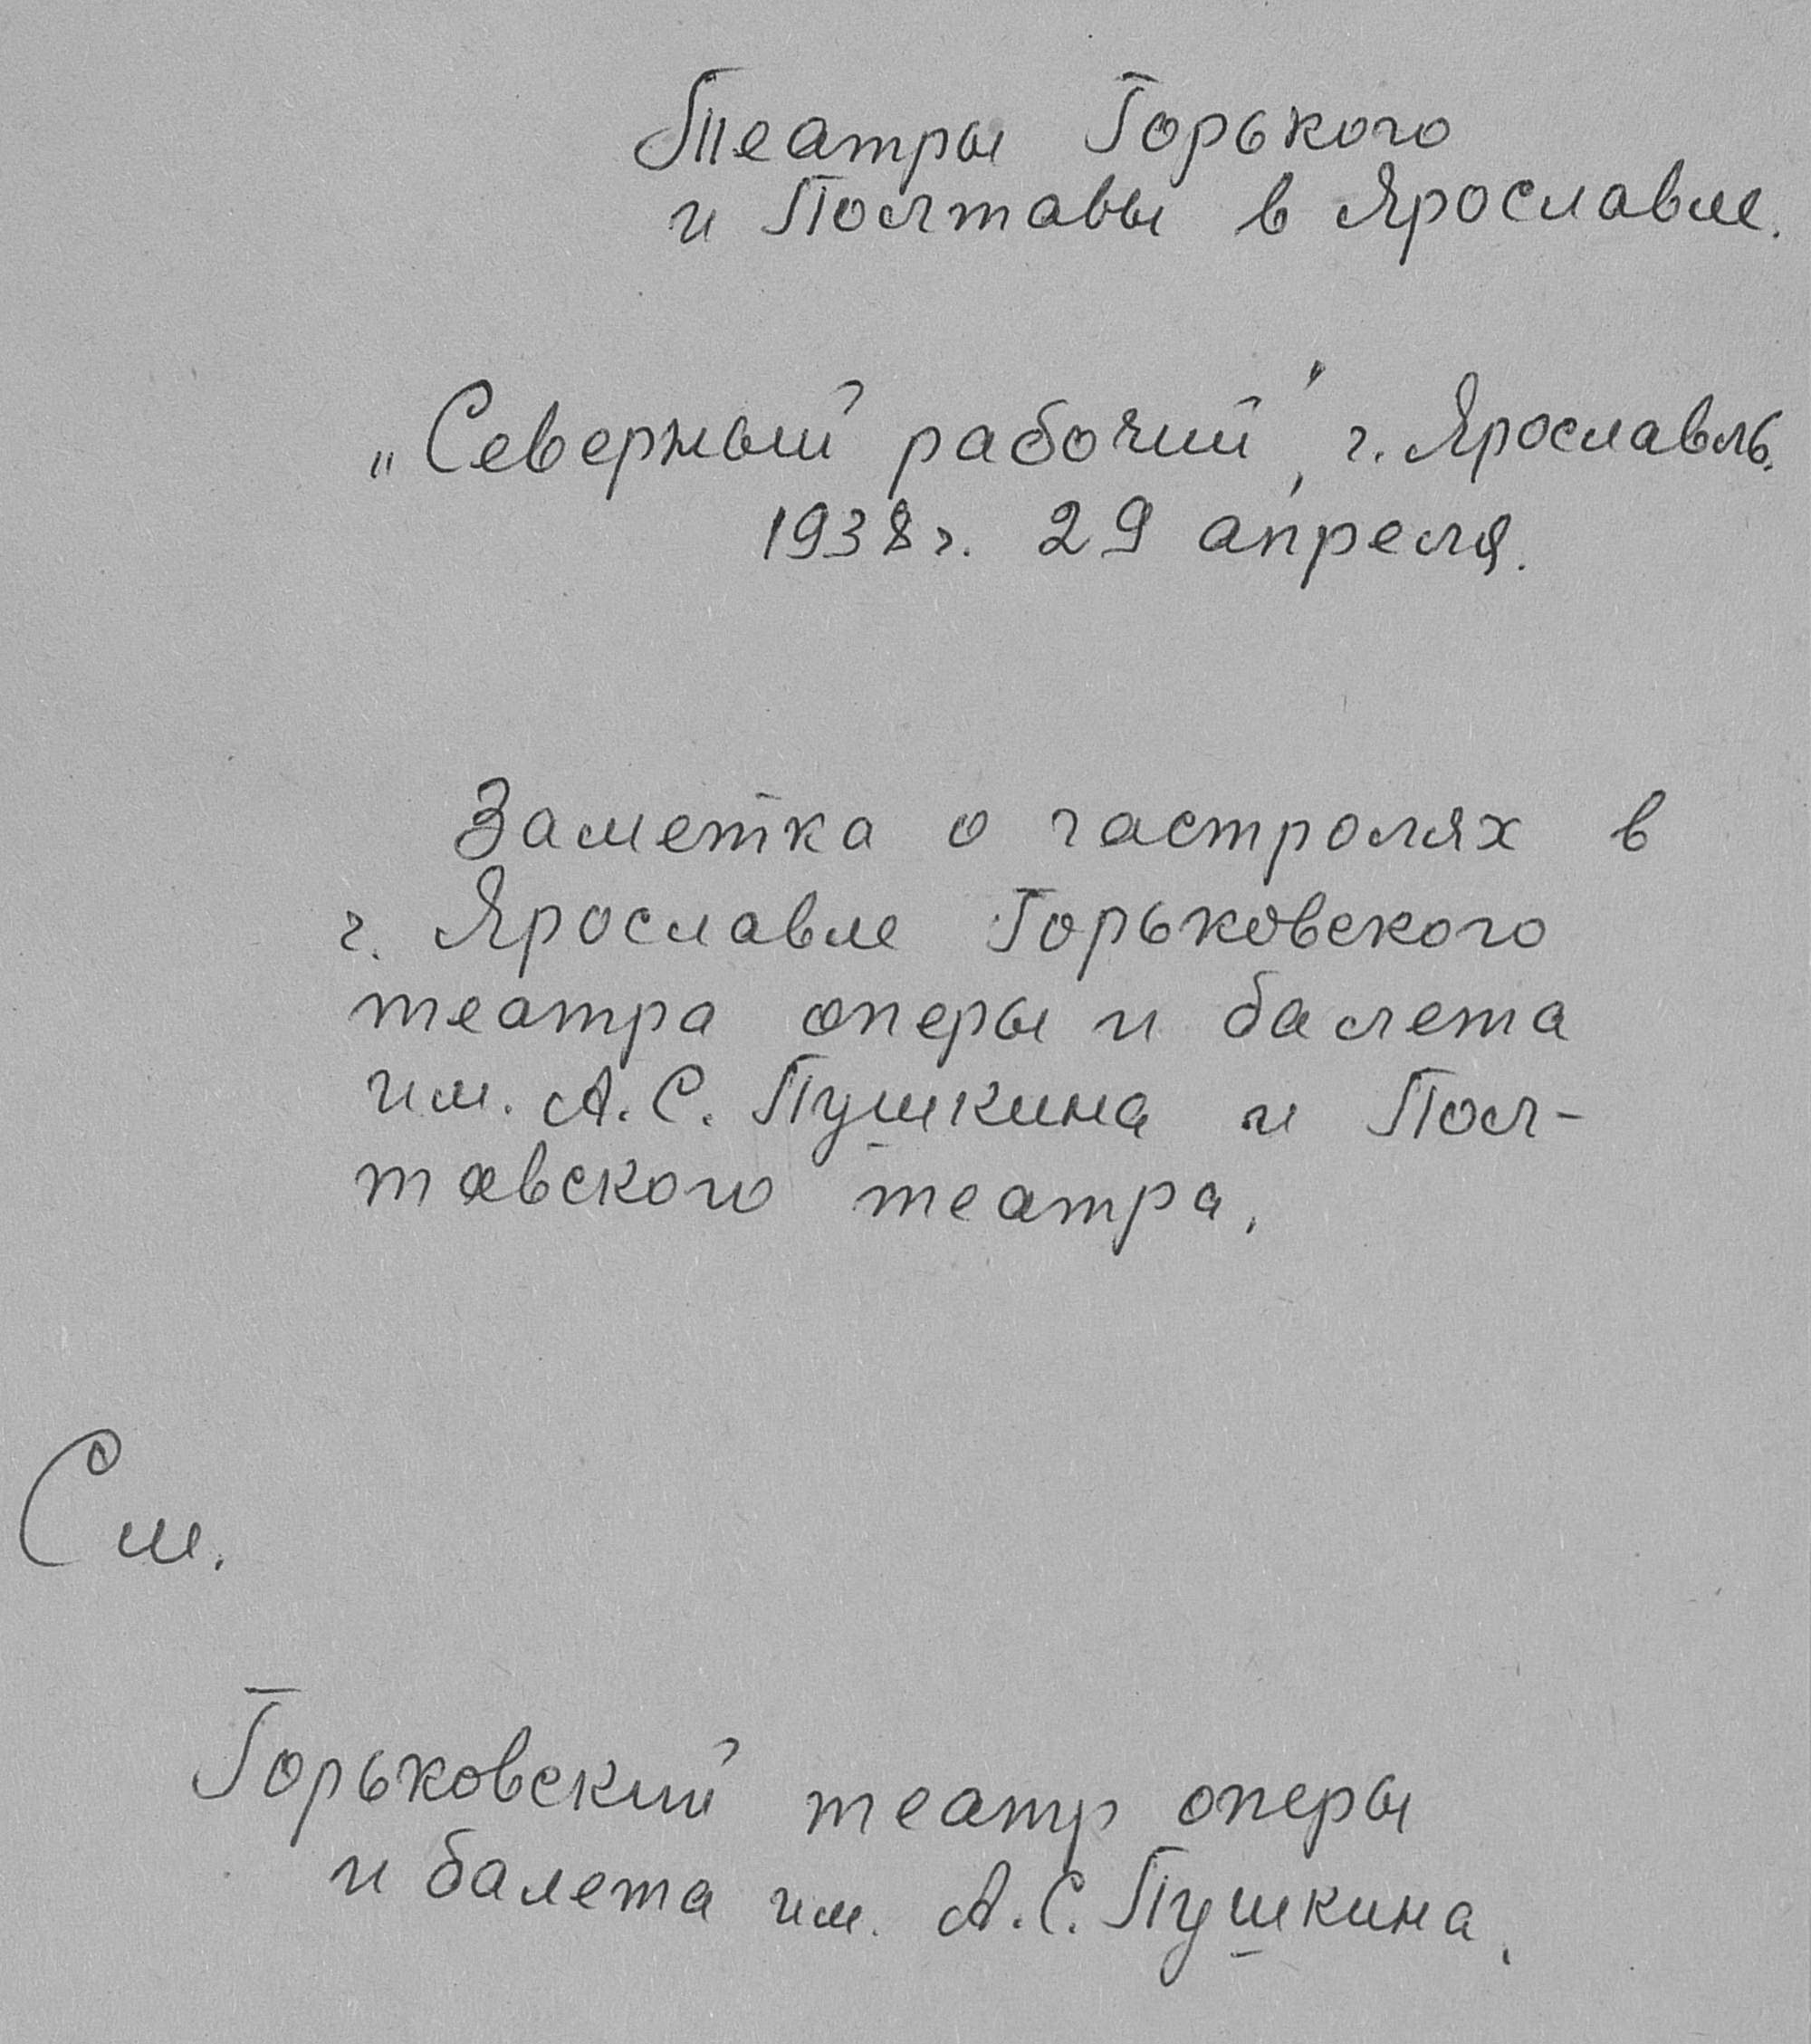 Театры Горького
и Полтавы в Ярославле.
„Северный рабочий", г. Ярославль.
1938 г. 29 апреля.
Заметка о гастролях в
г. Ярославле Горьковского
театра оперы и балета
им. А. С. Пушкина и Пол-
тавского театра.
См.
Горьковский театр оперы
и балета им. А. С. Пушкина.